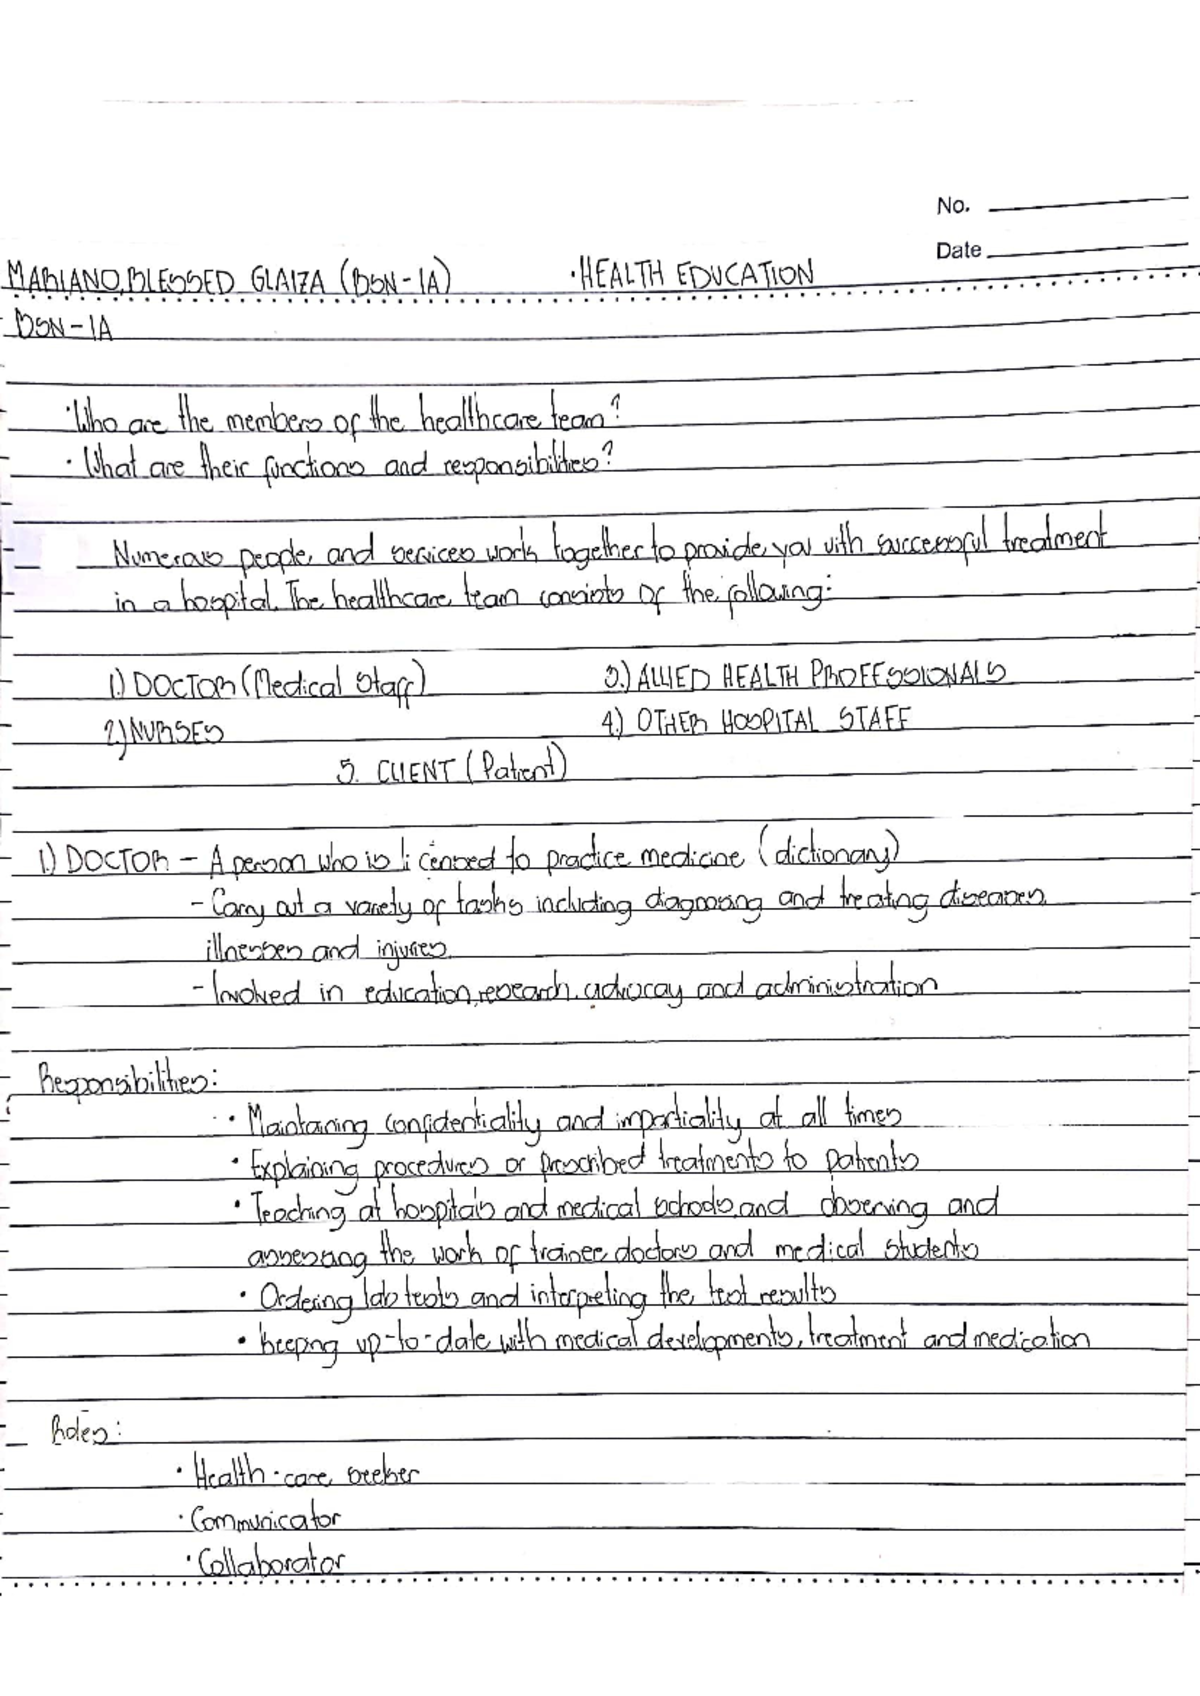 No.
Date
MARIANO, BLESSED GLAIZA (BSN-1A) • HEALTH EDUCATION
BSN-1A
• Who are the members of the healthcare team?
• What are their functions and responsibilities?
Numerous people and services work together to provide you with successful treatment
in a hospital. The healthcare team consists of the following:
1.) DOCTOR (Medical Staff) 3.) ALLIED HEALTH PROFESSIONALS
2.) NURSES 4.) OTHER HOSPITAL STAFF
5. CLIENT (Patient)
1.) DOCTOR - A person who is licensed to practice medicine (dictionary)
- Carry out a variety of tasks including diagnosing and treating diseases,
illnesses and injuries.
- Involved in education, research, advocay and administration
Responsibilities:
• Maintaining confidentiality and impartiality at all times
• Explaining procedures or prescribed treatments to patients
• Teaching at hospitals and medical schools, and observing and
assessing the work of trainee doctors and medical students
• Ordering lab tests and interpreting the test results
• Keeping up-to-date with medical developments, treatment and medication
Roles:
• Health-care seeker
• Communicator
• Collaborator